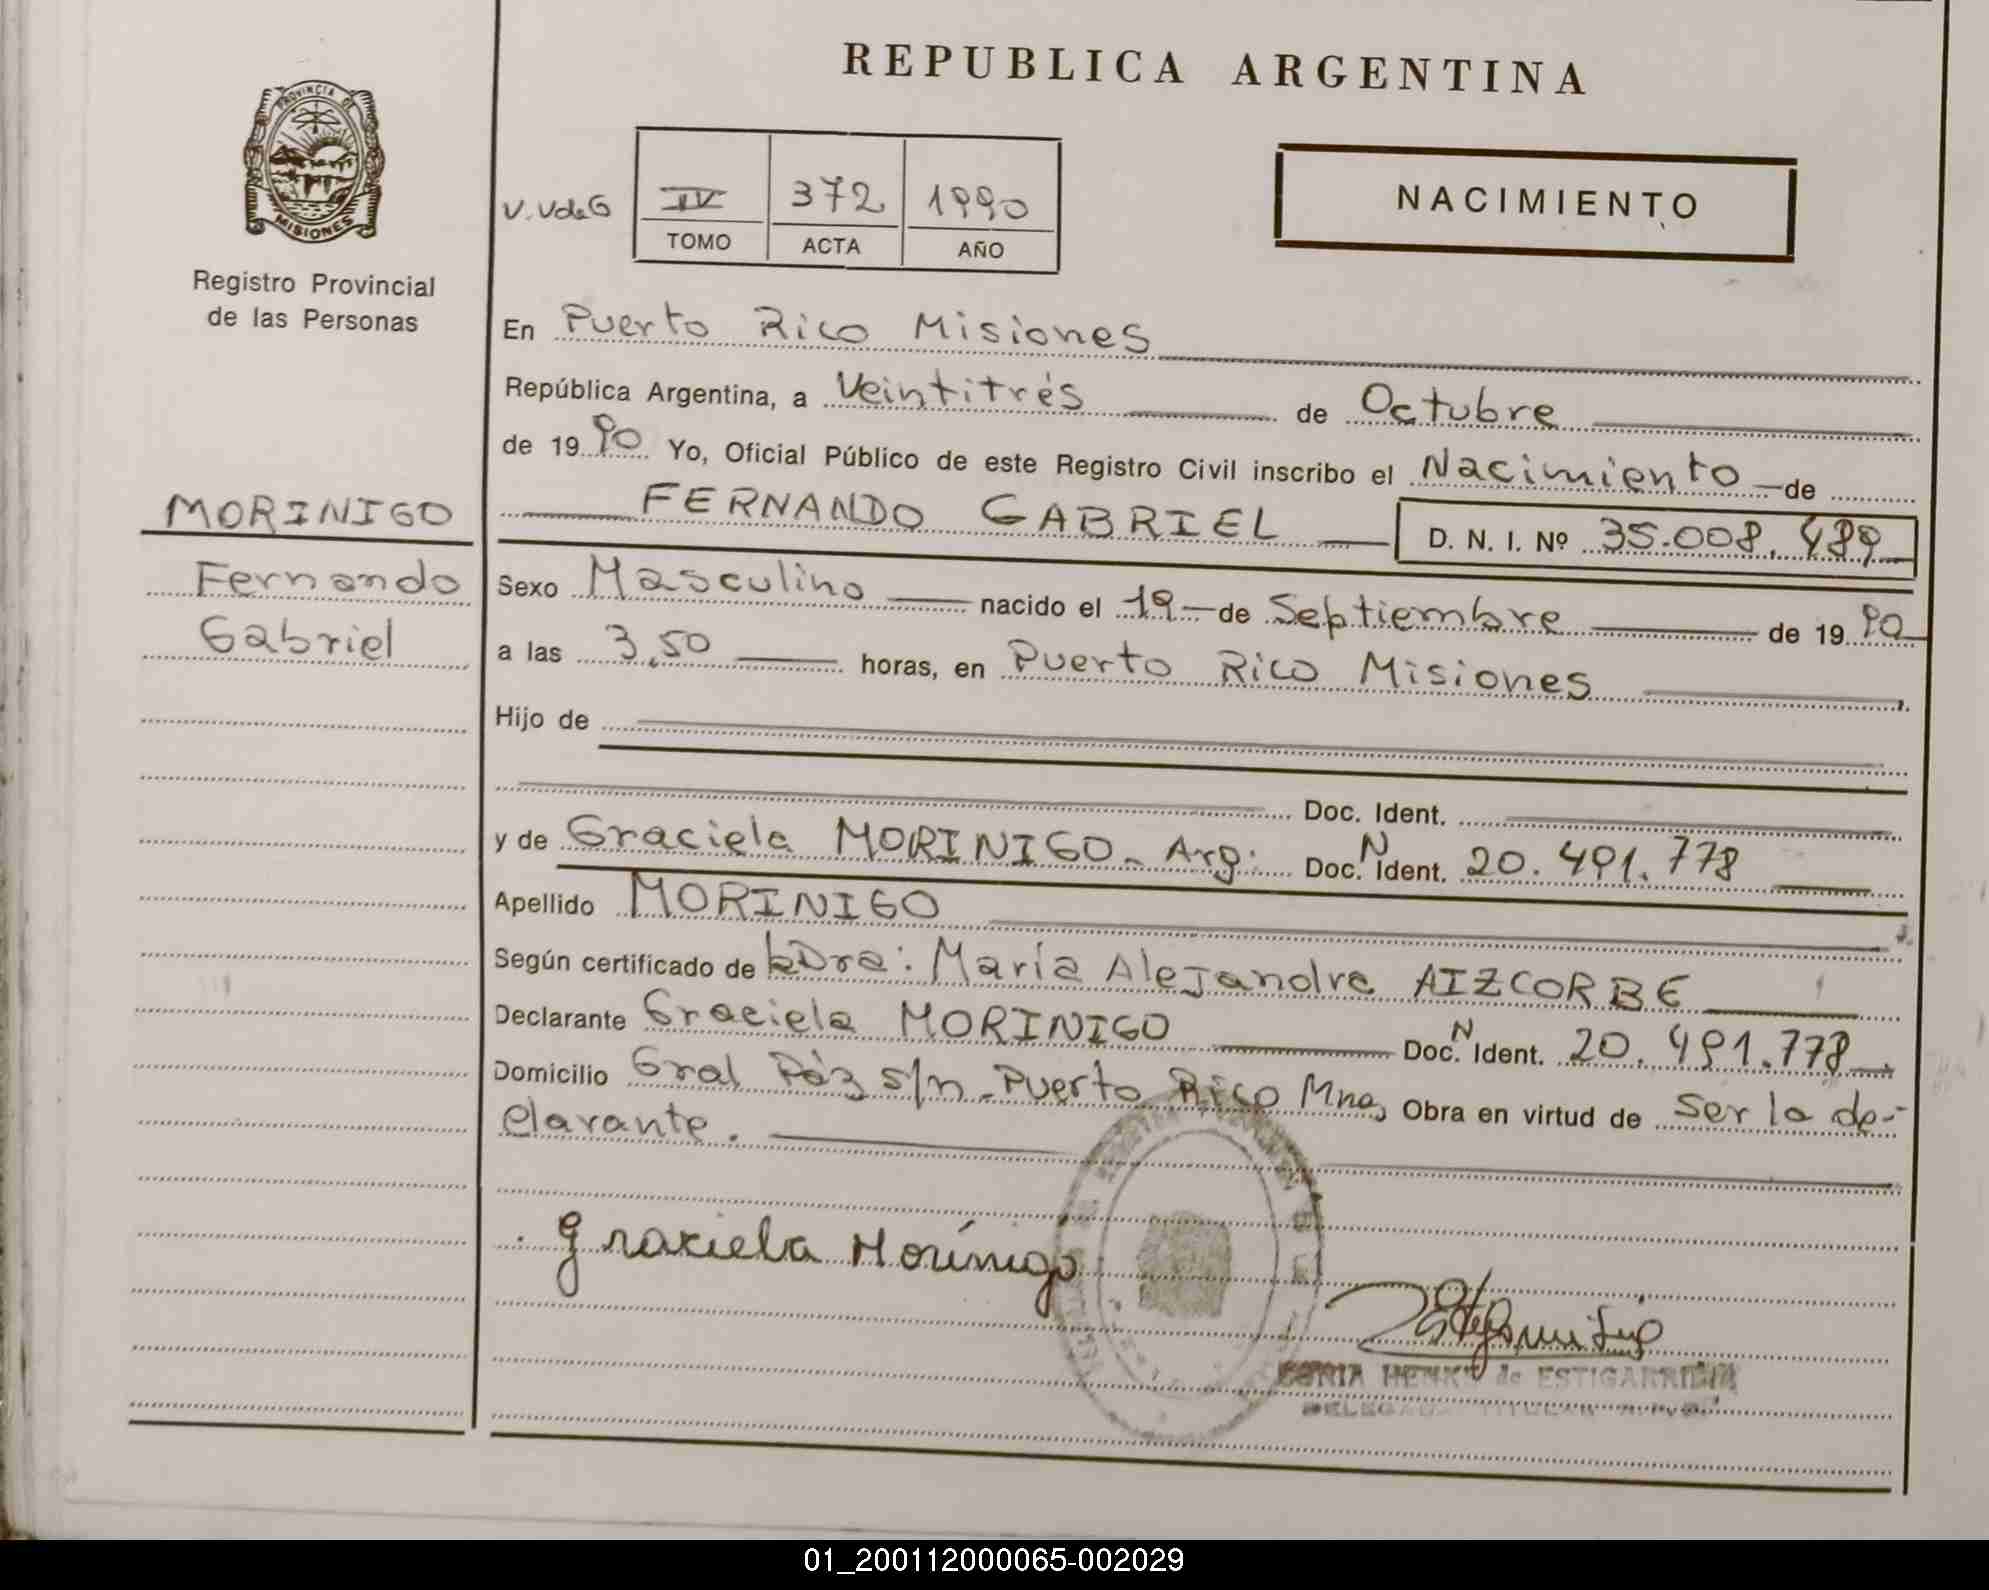 REPUBLICA ARGENTINA
PROVINCIA DE
MISIONES
Registro Provincial
de las Personas
V. VdeG
IV 372 1990
TOMO ACTA AÑO
NACIMIENTO
En Puerto Rico Misiones
República Argentina, a Veintitrés de Octubre
de 19 90 Yo, Oficial Público de este Registro Civil inscribo el Nacimiento de
FERNANDO GABRIEL D. N. I. Nº 35.008.489
MORINIGO
Fernando
Gabriel
Sexo Masculino nacido el 19 de Septiembre de 19 90
a las 3,50 horas, en Puerto Rico Misiones
Hijo de
Doc. Ident.
y de Graciela MORINIGO - Arg: Doc. N Ident. 20.491.778
Apellido MORINIGO
Según certificado de Dra: María Alejandra AIZCORBE
Declarante Graciela MORINIGO Doc. N Ident. 20.491.778
Domicilio Gral Páz s/n - Puerto Rico Mnes Obra en virtud de ser la de-
clarante.
Graciela Morínigo
SONIA HENKE de ESTIGARRIBIA
DELEGADA TITULAR
01_200112000065-002029